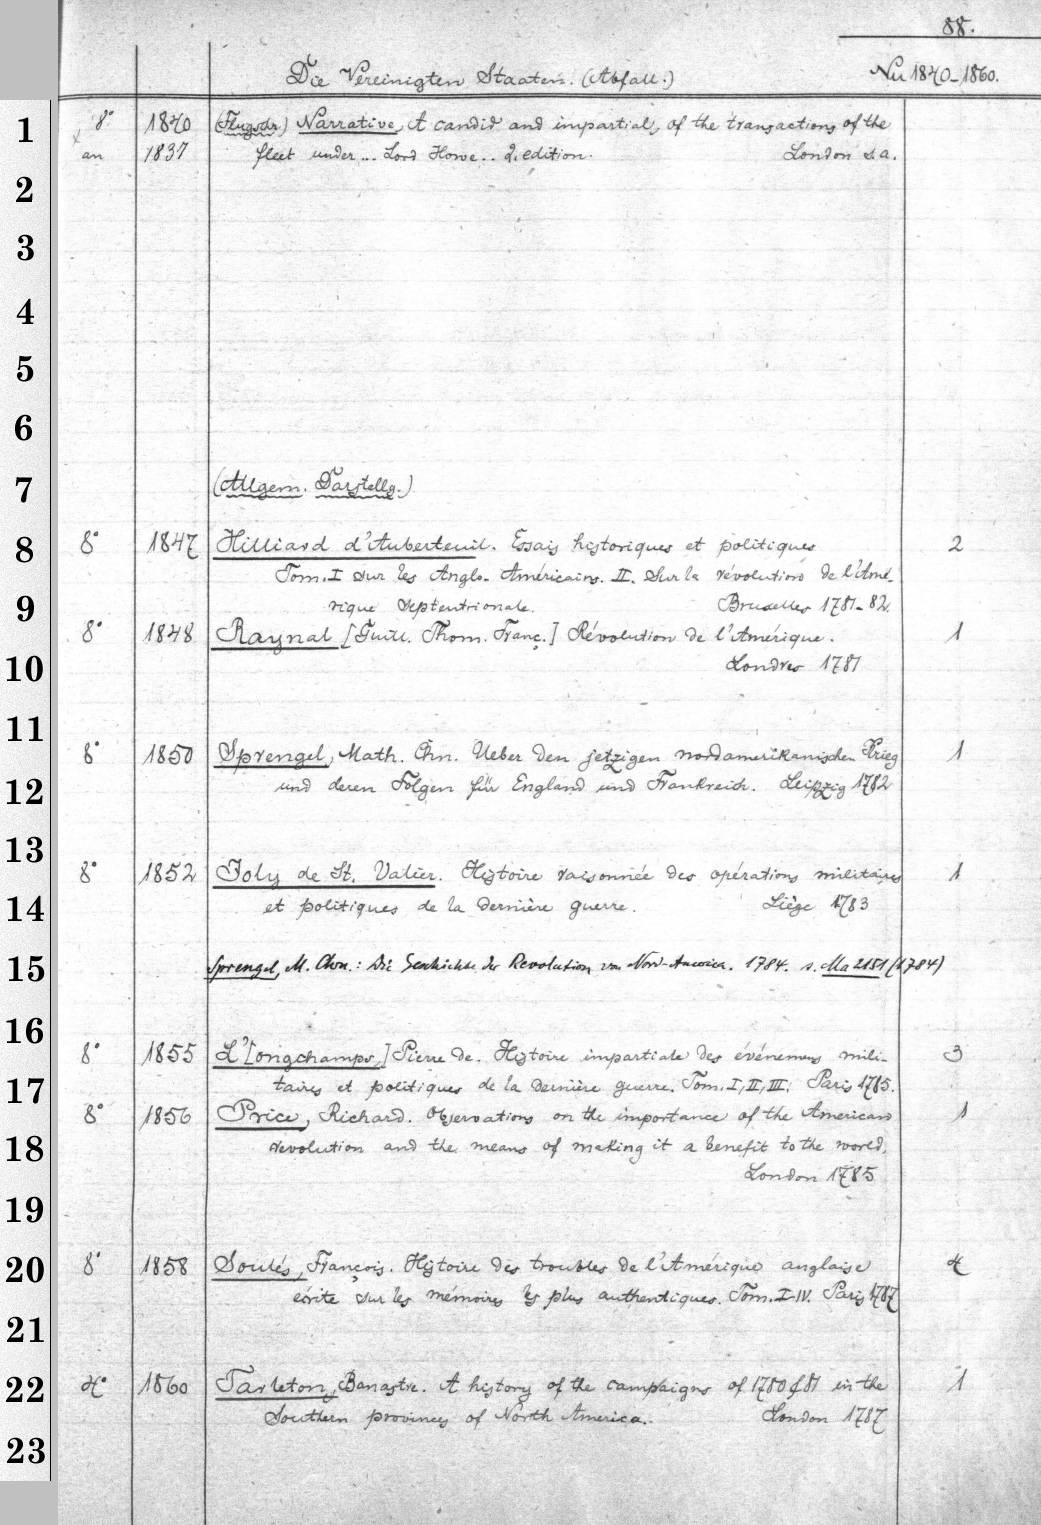 88.
Die Vereinigten Staaten. (Abfall.) Nu 1840-1860.
1 8° 1840 (Flugschr.) Narrative, A candid and impartial, of the transactions of the
an 1837 fleet under ... Lord Howe .. 2. edition. London s.a.
2
3
4
5
6
7 (Allgem. Darstellg.)
8 8° 1847 Hilliard d'Auberteuil. Essais historiques et politiques 2
Tom. I sur les Anglo-Américains. II. Sur la révolution de l'Amé-
9 rique septentrionale. Bruxelles 1781-82.
8° 1848 Raynal [Guill. Thom. Franç.] Révolution de l'Amérique. 1
10 Londres 1781
11
8° 1850 Sprengel, Math. Chn. Ueber den jetzigen nordamerikanischen Krieg 1
12 und deren Folgen für England und Frankreich. Leipzig 1782
13
8° 1852 Joly de St. Valier. Histoire raisonnée des opérations militaires 1
14 et politiques de la dernière guerre. Liège 1783
15 Sprengel, M. Chn.: Die Geschichte der Revolution von Nord-America. 1784. s. Ma 2151 (1784)
16
8° 1855 L'[ongchamps,] Pierre de. Histoire impartiale des événemens mili- 3
17 taires et politiques de la dernière guerre. Tom. I, II, III. Paris 1785.
8° 1856 Price, Richard. Observations on the importance of the American 1
18 revolution and the means of making it a benefit to the world.
London 1785
19
20 8° 1858 Soulés, François. Histoire des troubles de l'Amérique anglaise 4
écrite sur les mémoires les plus authentiques. Tom. I-IV. Paris 1787
21
22 4° 1860 Tarleton, Banastre. A history of the campaigns of 1780 & 81 in the 1
Southern provinces of North America.. London 1787
23